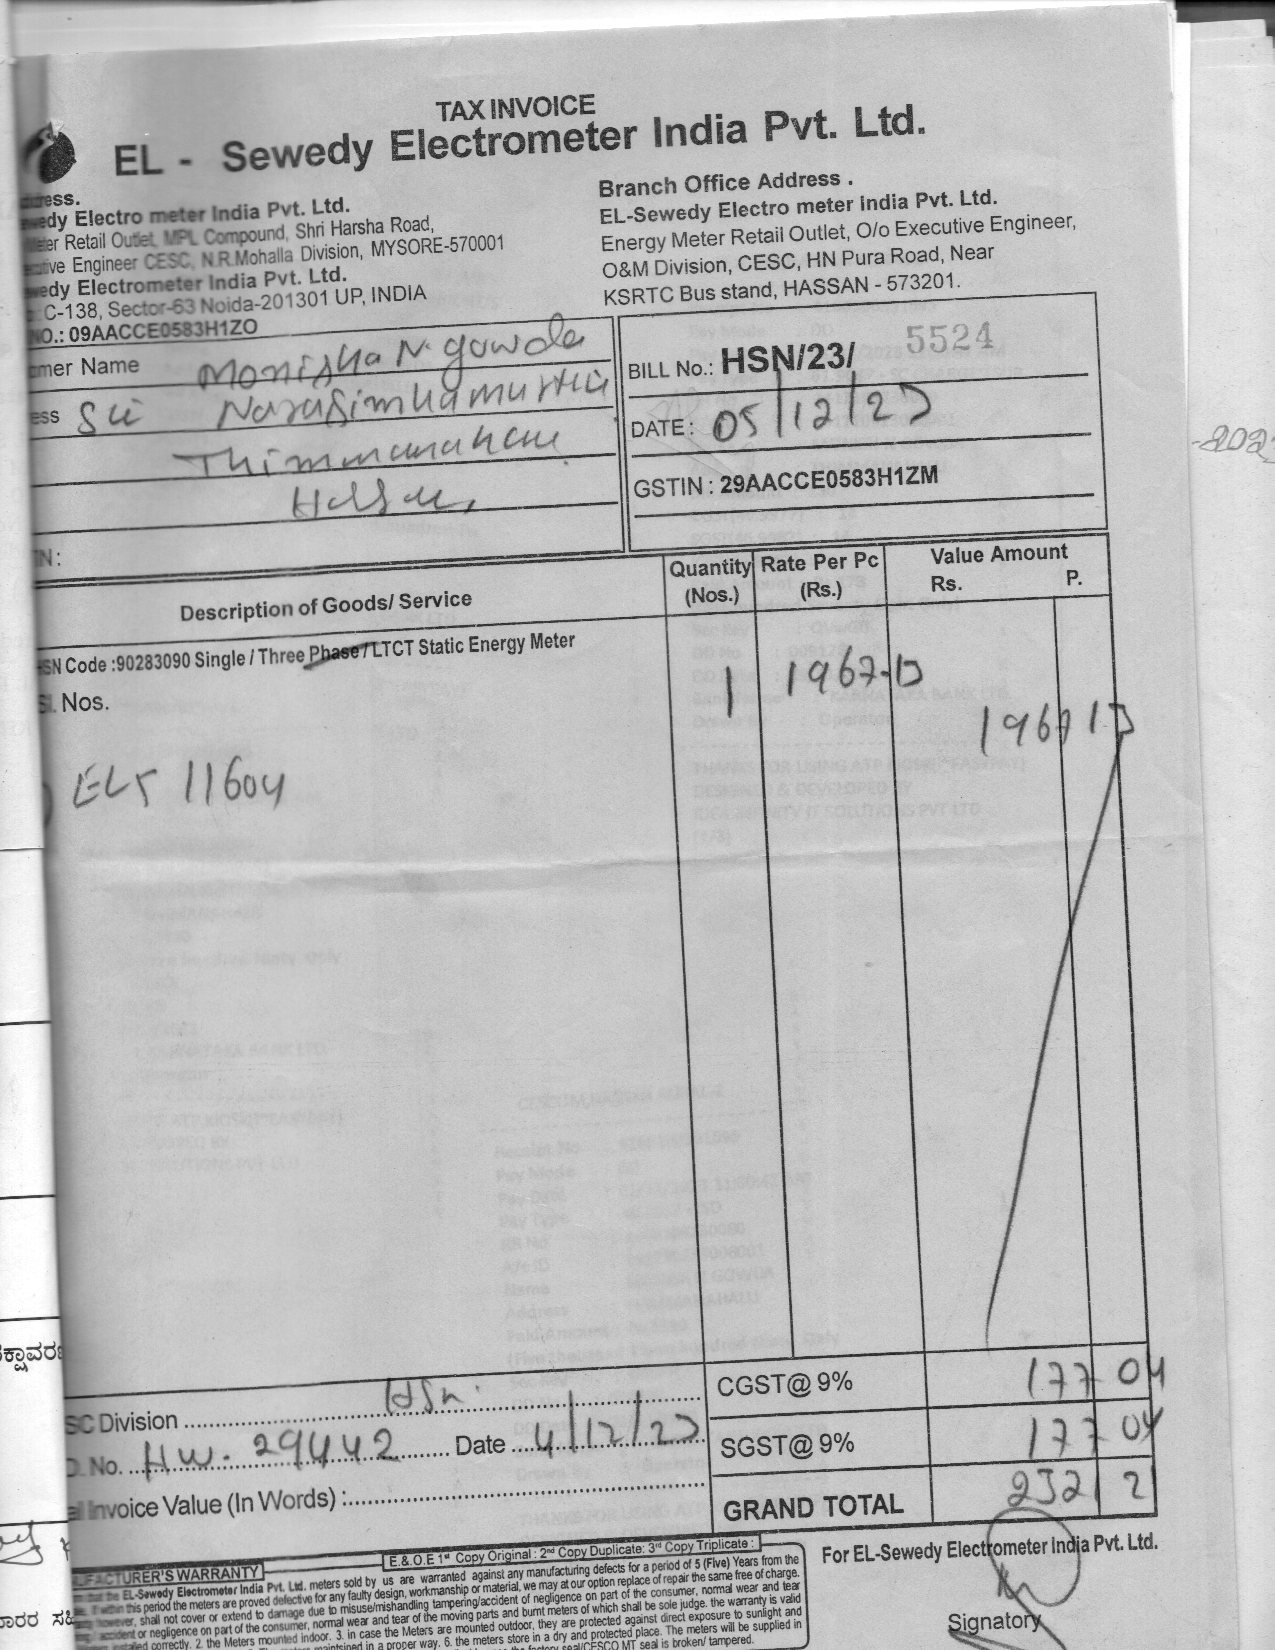 TAX INVOICE
EL - Sewedy Electrometer India Pvt. Ltd.
Sewedy Electro meter India Pvt. Ltd.
Meter Retail Outlet, MPL Compound, Shri Harsha Road,
Engineer CESC, N.R.Mohalla Division, MYSORE-570001
Sewedy Electrometer India Pvt. Ltd.
C-138, Sector-63 Noida-201301 UP, INDIA
NO.: 09AACCE0583H1ZO
Branch Office Address .
EL-Sewedy Electro meter India Pvt. Ltd.
Energy Meter Retail Outlet, O/o Executive Engineer,
O&M Division, CESC, HN Pura Road, Near
KSRTC Bus stand, HASSAN - 573201.
mer Name Monisha N. gowda
ess Sri Narasimhamurthy
Hassan
IN :
BILL No.: HSN/23/ 5524
DATE : 05/12/23
GSTIN : 29AACCE0583H1ZM
Description of Goods/ Service
Quantity (Nos.)
Rate Per Pc (Rs.)
Value Amount
Rs. P.
HSN Code :90283090 Single / Three Phase / LTCT Static Energy Meter
Sl. Nos.
1 1967-13
1967 13
ELS 11604
SC Division Hsn.
No. HW. 29442 Date 4/12/23
Invoice Value (In Words) :
CGST@ 9% 177 04
SGST@ 9% 177 04
GRAND TOTAL 2321 21
E.& O.E 1st Copy Original : 2nd Copy Duplicate: 3rd Copy Triplicate :
For EL-Sewedy Electrometer India Pvt. Ltd.
Signatory
UFACTURER'S WARRANTY
the EL-Sewedy Electrometer India Pvt. Ltd. meters sold by us are warranted against any manufacturing defects for a period of 5 (Five) Years from the
this period the meters are proved defective for any faulty design, workmanship or material, we may at our option replace of repair the same free of charge.
however, shall not cover or extend to damage due to misuse/mishandling tampering/accident of negligence on part of the consumer, normal wear and tear
accident or negligence on part of the consumer, normal wear and tear of the moving parts and burnt meters of which shall be sole judge. the warranty is valid
installed correctly. 2. the Meters mounted indoor. 3. in case the Meters are mounted outdoor, they are protected against direct exposure to sunlight and
maintained in a proper way. 6. the meters store in a dry and protected place. The meters will be supplied in
seal/CESCO MT seal is broken/ tampered.